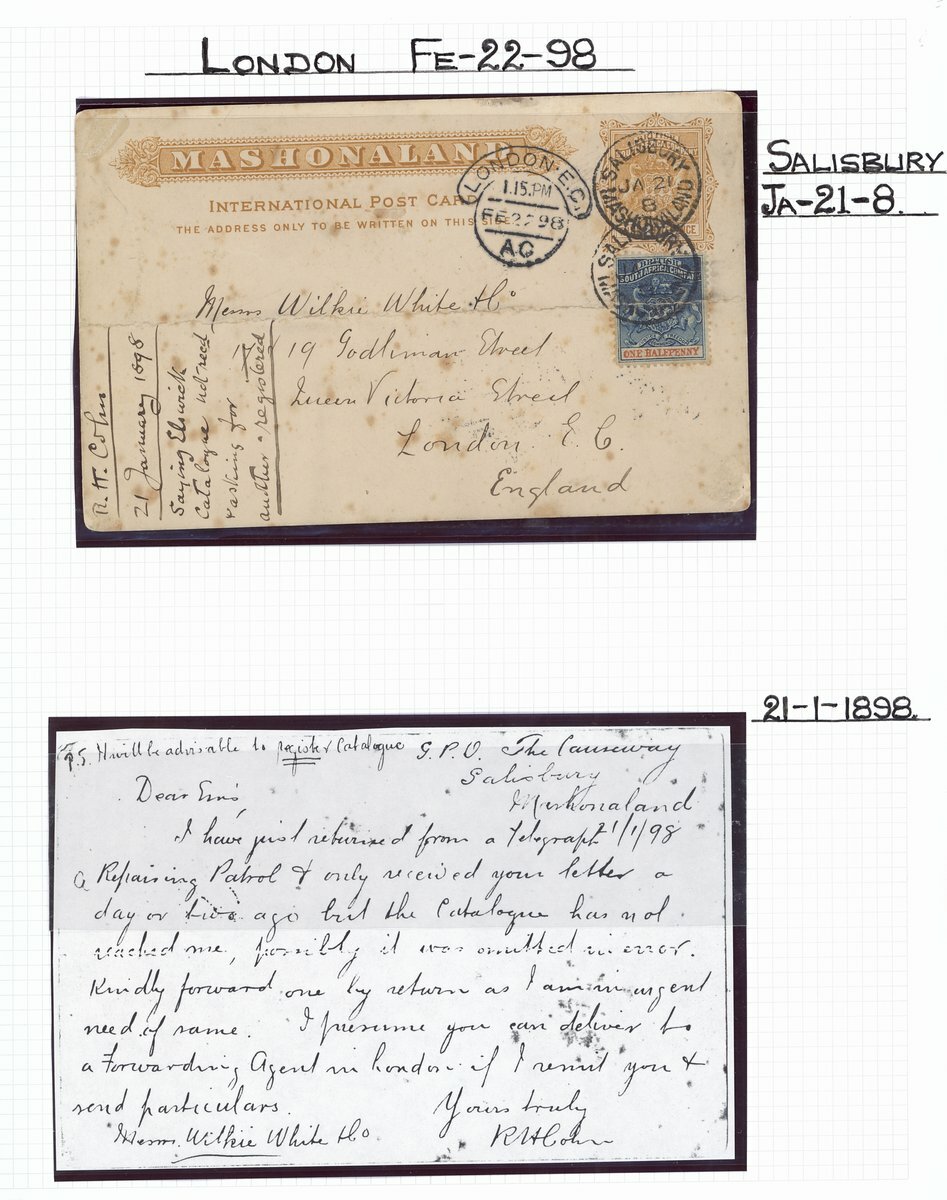 LONDON FE-22-98
MASHONALAND
INTERNATIONAL POST CARD
THE ADDRESS ONLY TO BE WRITTEN ON THIS SIDE
LONDON.E.C.
1.15.PM
FE 22 98
AC
SALISBURY
JA 21
8
MASHONALAND
SALISBURY
SOUTH AFRICA COMPANY
ONE HALFPENNY
SALISBURY
JA-21-8.
Messrs Wilkie White & Co
19 Godliman Street
Queen Victoria Street
London E.C.
England
R.H. Cohn
21 January 1898
Saying Elswick
Catalogue not recd
+ asking for
another "registered
21-1-1898.
P.S. It will be advisable to register Catalogue
G.P.O. The Causeway
Salisbury
Mashonaland
21/1/98
Dear Sirs,
I have just returned from a Telegraph
Repairing Patrol & only received your letter a
day or two ago but the Catalogue has not
reached me, possibly it was omitted in error.
Kindly forward one by return as I am in urgent
need of same. I presume you can deliver to
a Forwarding Agent in London if I remit you &
send particulars.
Yours truly
Messrs. Wilkie White & Co
R H Cohn